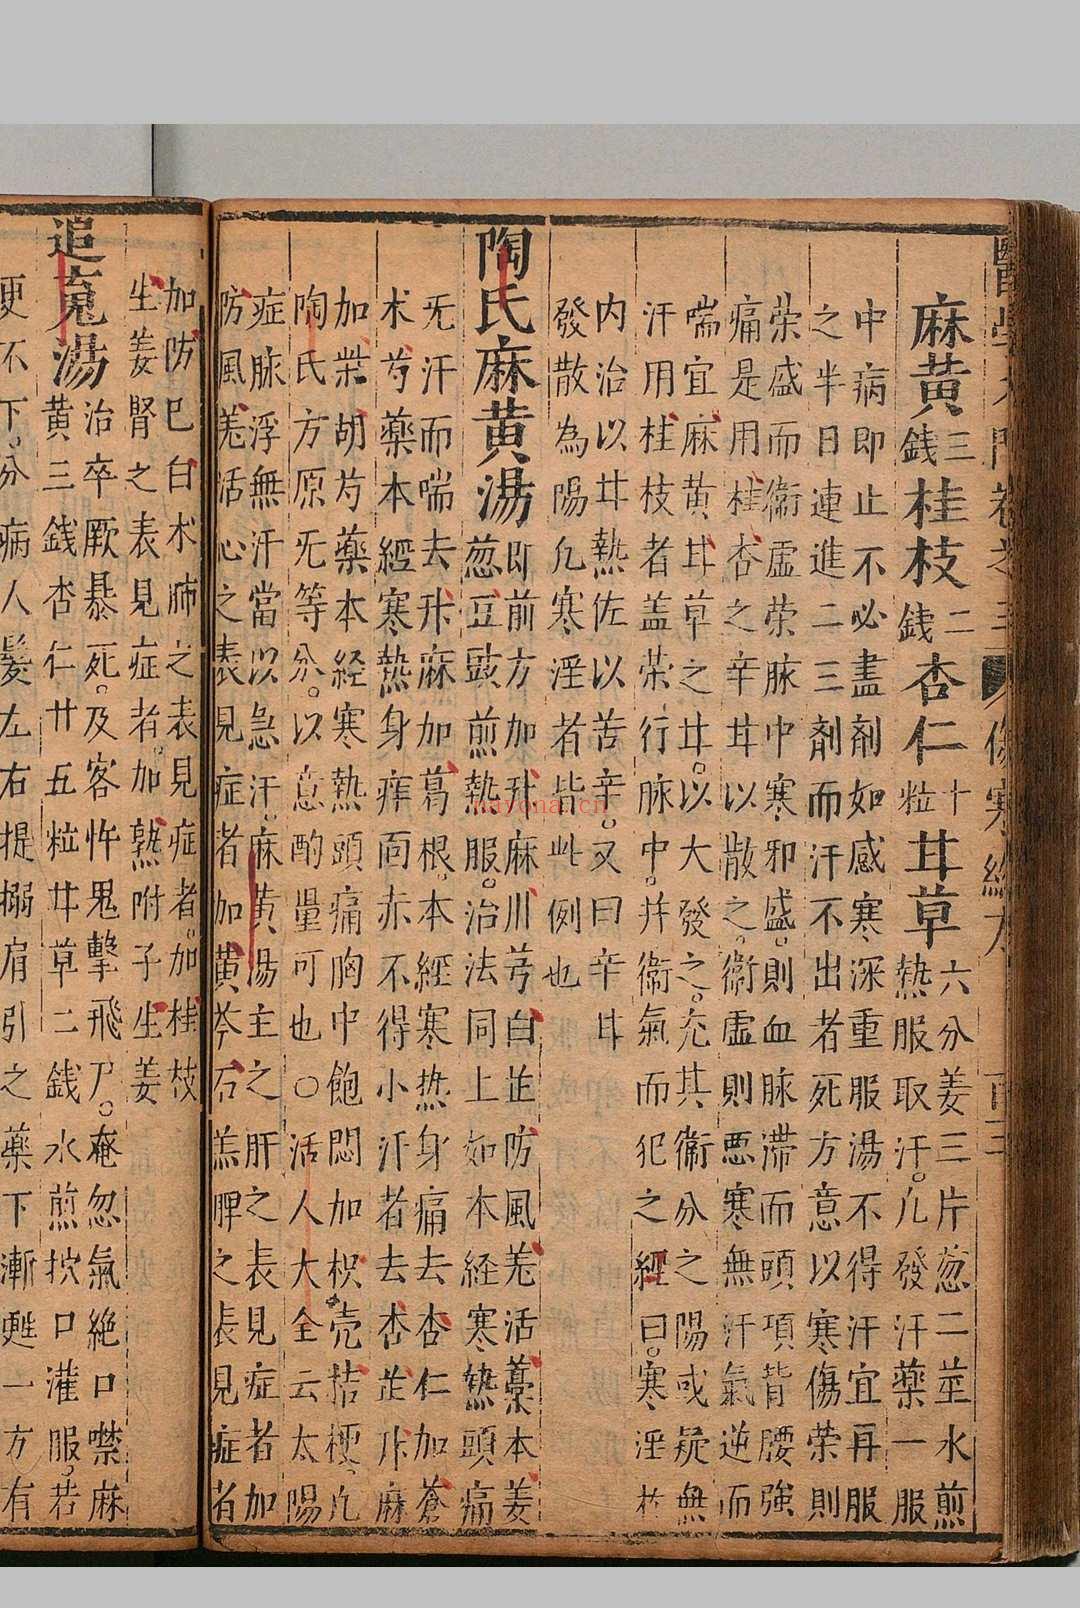 麻黄三錢桂枝二錢杏仁十粒甘草六分姜三片葱二莖水煎
熱服取汗凡發汗藥一服
中病即止不必盡剤如感寒深重服湯不得汗宜再服
之半日連進二三剤而汗不出者死方意以寒傷荣則
荣盛而衞虚荣脉中寒邪盛則血脉滞而頭項背腰強
痛是用桂杏之辛甘以散之衞虚則悪寒無汗氣逆而
喘宜麻黄甘草之甘以大發之亢其衞分之陽或疑無
汗用桂枝者盖荣行脉中并衞氣而犯之經曰寒淫
内治以甘熱佐以苦辛又曰辛甘
發散為陽凡寒淫者皆此例也
陶氏麻黄湯即前方加升麻川芎白芷防風羌活藁本姜
葱豆豉煎熱服治法同上如本經寒熱頭痛
无汗而喘去升麻加葛根本經寒热身痛去杏仁加蒼
术芍藥本經寒熱身痒面赤不得小汗者去杏芷升麻
加柴胡芍藥本経寒熱頭痛胸中飽悶加枳壳桔梗凡
陶氏方原旡等分以意酌量可也○活人大全云太陽
症脉浮無汗當以急汗麻黄湯主之肝之表見症者加
防風羌活心之表見症者加黄芩石羔脾之表見症者
加防巳白术肺之表見症者加桂枝
生姜腎之表見症者加熟附子生姜
追䰟湯治卒厥暴死及客忤鬼擊飛尸奄忽氣絶口噤麻
黄三錢杏仁廿五粒甘草二銭水煎拠口灌服若
更不下分病人髪左右提搦肩引之藥下漸甦一方有
醫學入門卷之三
nayona.cn